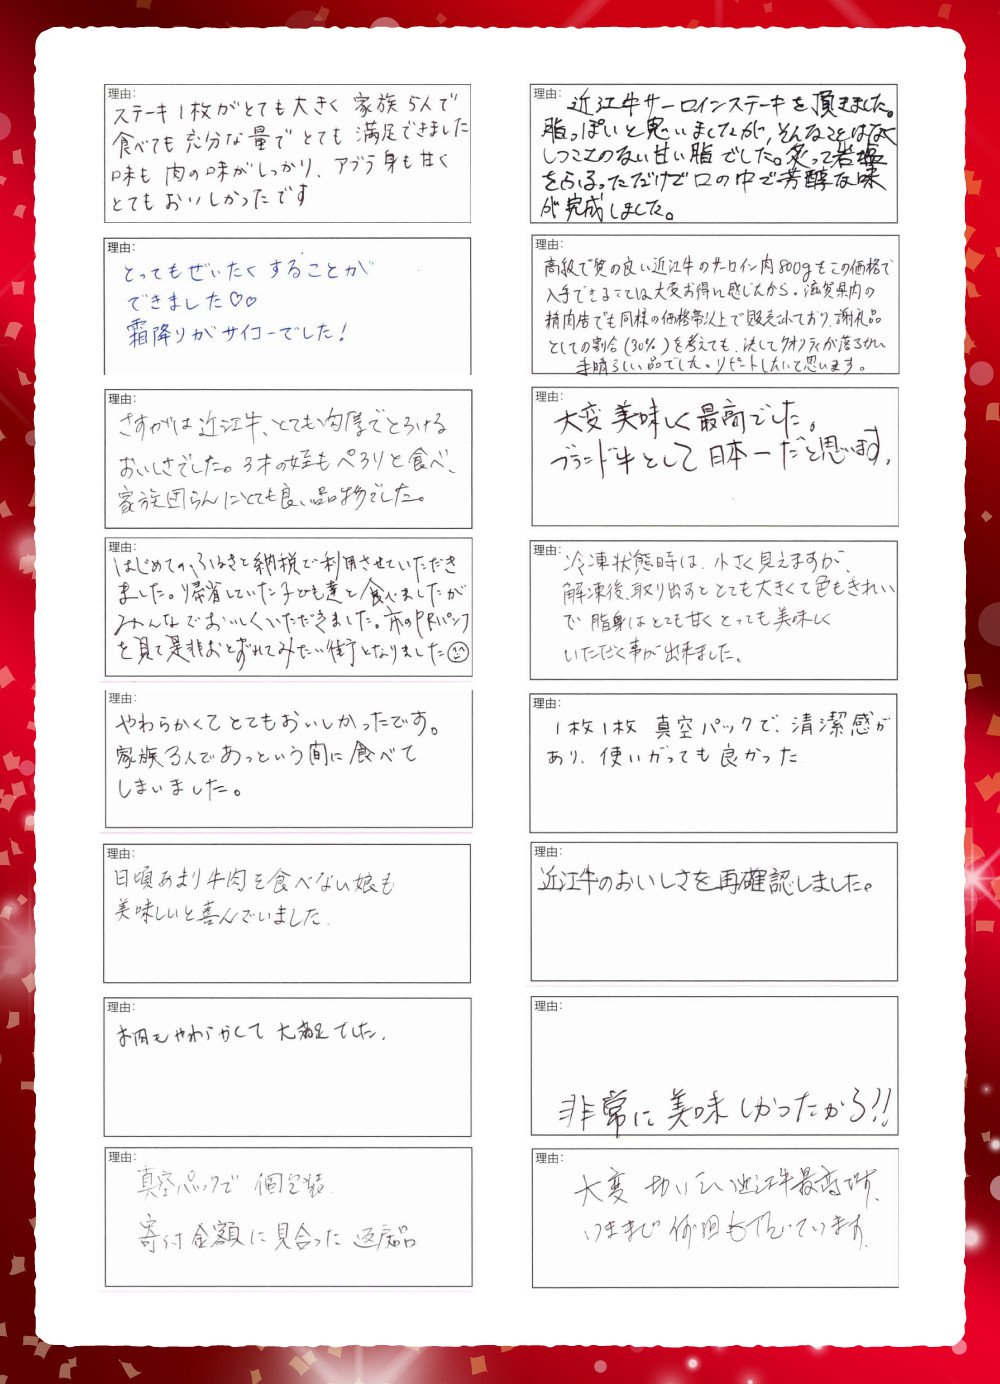 理由:
ステーキ1枚がとても大きく 家族5人で
食べても充分な量で とても 満足できました
味も 肉の味がしっかり、アブラ身も甘く
とても おいしかったです
理由:
とってもぜいたく することが
できました♡♡
霜降りがサイコーでした!
理由:
さすがは近江牛、とても肉厚でとろける
おいしさでした。3才の姪もぺろりと食べ、
家族団らんにとても良い品物でした。
理由:
はじめての、ふるさと納税で利用させていただき
ました。帰省していた子ども達と食べましたが
みんなでおいしくいただきました。市のPRパンフ
を見て是非おとずれてみたい街となりました
理由:
やわらかくて とてもおいしかったです。
家族3人であっという間に食べて
しまいました。
理由:
日頃あまり牛肉を食べない娘も
美味しいと喜んでいました.
理由:
お肉もやわらかくて 大満足でした.
理由:
真空パックで 個包装
寄付金額に見合った 返礼品
理由:
近江牛サーロインステーキを頂きました。
脂っぽいと思いましたが、そんなことはなく
しつこさのない甘い脂でした。炙って岩塩
をふるっただけで口の中で芳醇な味
が完成しました。
理由:
高級で質の良い近江牛のサーロイン肉800gをこの価格で
入手できることは大変お得に感じたから。滋賀県内の
精肉店でも同様の価格帯以上で販売されており、謝礼品
としての割合(30%)を考えても、決してクオリティが落ちない
素晴らしい品でした。リピートしたいと思います。
理由:
大変 美味しく 最高でした。
ブランド牛として 日本一だと思います。
理由:
冷凍状態時は、小さく見えますが、
解凍後、取り出すと とても大きくて色もきれい
で 脂身はとても甘く とっても美味しく
いただく事が出来ました。
理由:
1枚1枚 真空パックで、清潔感が
あり、使いがっても良かった
理由:
近江牛のおいしさを再確認しました。
理由:
非常に美味しかったから!!
理由:
大変 近江牛最高です。
いままで 何回も います。